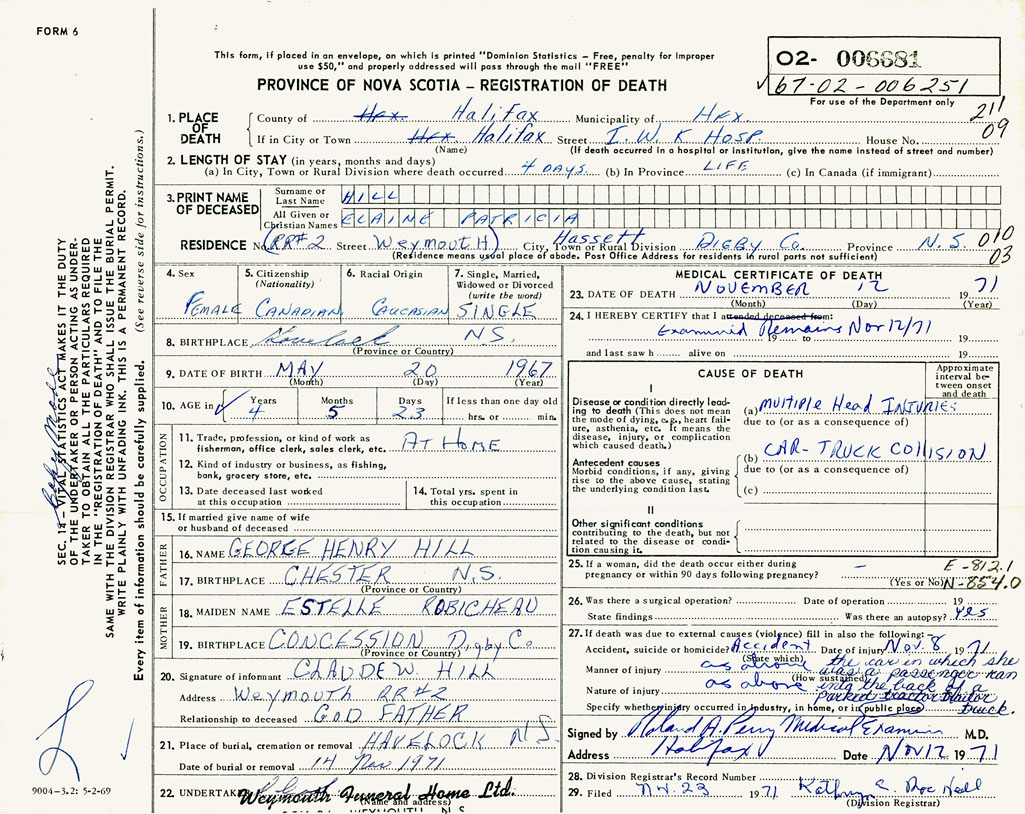 FORM 6
This form, if placed in an envelope, on which is printed "Dominion Statistics – Free, penalty for improper
use $50," and properly addressed will pass through the mail "FREE"
PROVINCE OF NOVA SCOTIA – REGISTRATION OF DEATH
02- 006681
67-02-006251
For use of the Department only
211
09
1. PLACE OF DEATH
County of Hfx. Halifax Municipality of Hfx.
If in City or Town Hfx. Halifax Street I.W.K Hosp. House No.
(Name) (If death occurred in a hospital or institution, give the name instead of street and number)
2. LENGTH OF STAY (in years, months and days)
(a) In City, Town or Rural Division where death occurred 4 DAYS. (b) In Province LIFE (c) In Canada (if immigrant)
3. PRINT NAME OF DECEASED
Surname or Last Name HILL
All Given or Christian Names ELAINE PATRICIA
RESIDENCE No. (RR#2 Street Weymouth) City, Town or Rural Division Hassett DIGBY Co. Province N.S. 010
03
(Residence means usual place of abode. Post Office Address for residents in rural parts not sufficient)
4. Sex FEMALE
5. Citizenship (Nationality) CANADIAN
6. Racial Origin CAUCASIAN
7. Single, Married, Widowed or Divorced (write the word) SINGLE
8. BIRTHPLACE N.S.
(Province or Country)
9. DATE OF BIRTH MAY 20 1967
(Month) (Day) (Year)
10. AGE in Years 4 Months 5 Days 23 If less than one day old
hrs. or min.
OCCUPATION
11. Trade, profession, or kind of work as fisherman, office clerk, sales clerk, etc. AT HOME
12. Kind of industry or business, as fishing, bank, grocery store, etc.
13. Date deceased last worked at this occupation
14. Total yrs. spent in this occupation
15. If married give name of wife or husband of deceased
FATHER
16. NAME GEORGE HENRY HILL
17. BIRTHPLACE CHESTER N.S.
(Province or Country)
MOTHER
18. MAIDEN NAME ESTELLE ROBICHEAU
19. BIRTHPLACE CONCESSION Digby Co.
(Province or Country)
20. Signature of informant CLAUDE W. HILL
Address Weymouth RR#2
Relationship to deceased GOD FATHER
21. Place of burial, cremation or removal HAVELOCK N.S.
Date of burial or removal 14 Nov 1971
22. UNDERTAKER Weymouth Funeral Home Ltd.
(Name and address)
WEYMOUTH, N.S.
MEDICAL CERTIFICATE OF DEATH
23. DATE OF DEATH NOVEMBER 12 1971
(Month) (Day) (Year)
24. I HEREBY CERTIFY that I attended deceased from:
Examined Remains Nov 12/71
19 to 19
and last saw h alive on 19
CAUSE OF DEATH
Approximate interval between onset and death
I
Disease or condition directly leading to death (This does not mean the mode of dying, e.g., heart failure, asthenia, etc. It means the disease, injury, or complication which caused death.)
(a) Multiple Head INJURIES
due to (or as a consequence of)
Antecedent causes
Morbid conditions, if any, giving rise to the above cause, stating the underlying condition last.
(b) CAR-TRUCK COLLISION
due to (or as a consequence of)
(c)
II
Other significant conditions contributing to the death, but not related to the disease or condition causing it.
25. If a woman, did the death occur either during pregnancy or within 90 days following pregnancy? –
(Yes or No)
E-812.1
N-854.0
26. Was there a surgical operation? Date of operation 19
State findings Was there an autopsy? yes
27. If death was due to external causes (violence) fill in also the following:
Accident, suicide or homicide? Accident Date of injury Nov. 8 1971
(State which)
Manner of injury as above the car in which she was a passenger ran
(How sustained)
Nature of injury as above into the back of a parked tractor trailer truck.
Specify whether injury occurred in industry, in home, or in public place
Signed by Roland A. Perry Medical Examiner M.D.
Address Halifax Date Nov 12 1971
28. Division Registrar's Record Number
29. Filed Nov. 23 1971 Kathryn
(Division Registrar)
SEC. 12 – VITAL STATISTICS ACT MAKES IT THE DUTY
OF THE UNDERTAKER OR PERSON ACTING AS UNDER-
TAKER TO OBTAIN ALL THE PARTICULARS REQUIRED
IN THE "REGISTRATION OF DEATH" AND TO FILE THE
SAME WITH THE DIVISION REGISTRAR WHO SHALL ISSUE THE BURIAL PERMIT.
WRITE PLAINLY WITH UNFADING INK. THIS IS A PERMANENT RECORD.
Every item of information should be carefully supplied. (See reverse side for instructions.)
9004-3.2: 5-2-69